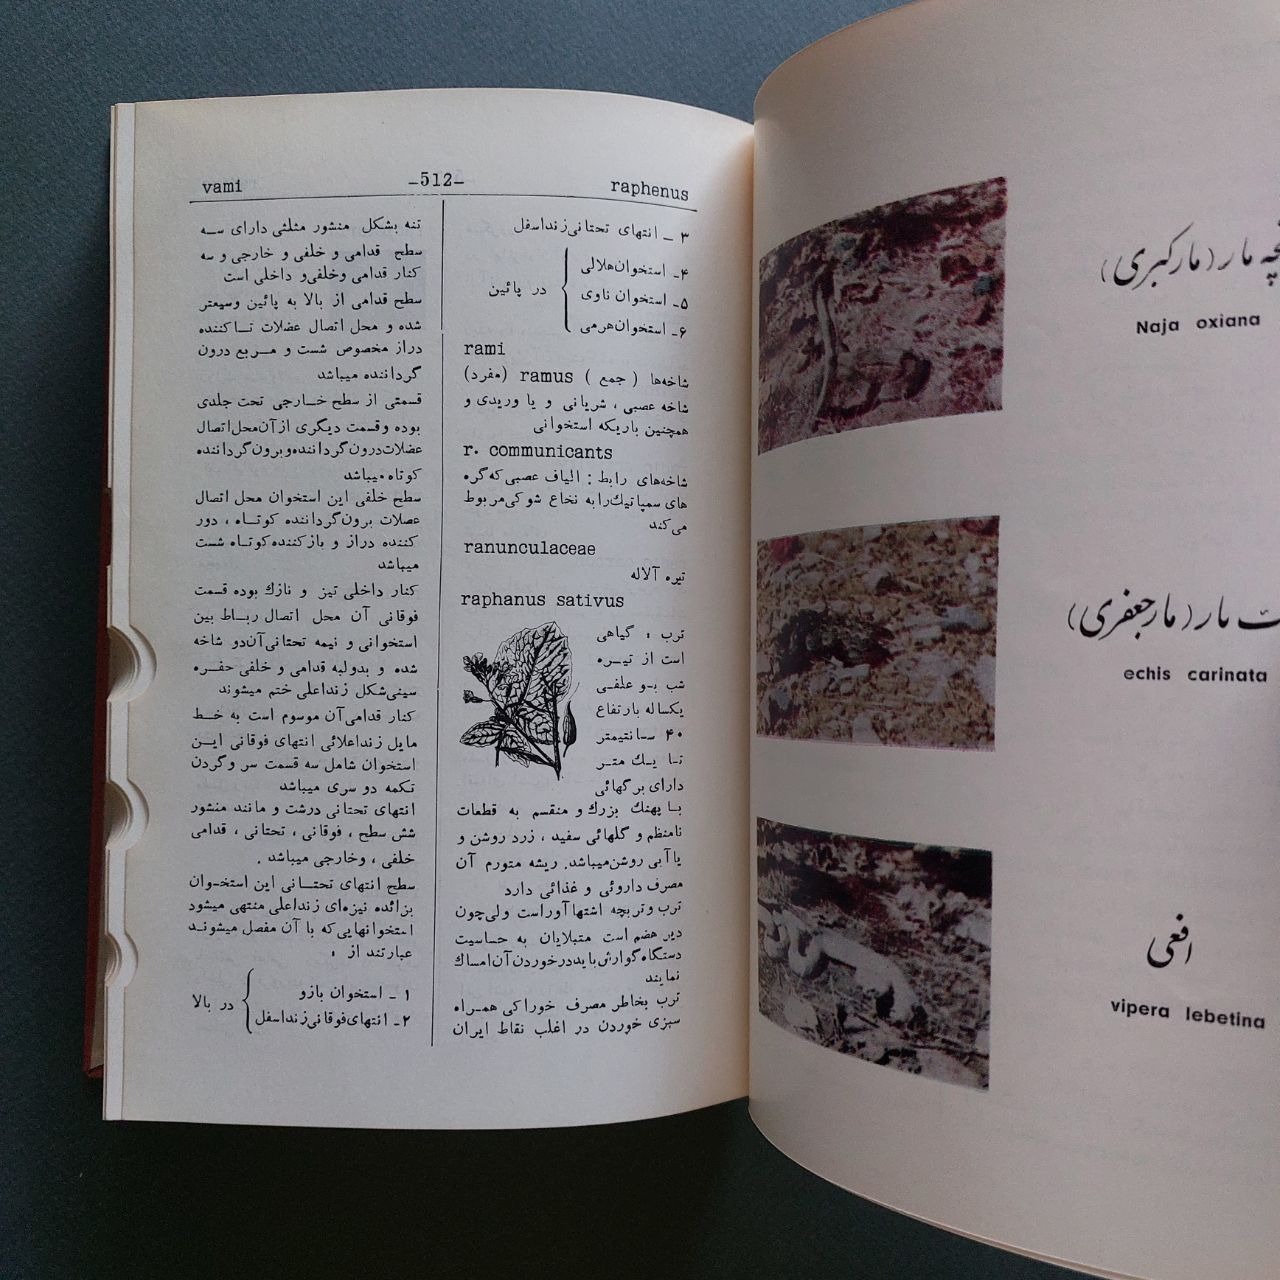 vami -512- raphenus
تنه بشکل منشور مثلثی دارای سه
سطح قدامی و خلفی و خارجی و سه
کنار قدامی وخلفی و داخلی است
سطح قدامی از بالا به پائین وسیعتر
شده و محل اتصال عضلات تاکننده
دراز مخصوص شست و مربع درون
گرداننده میباشد
قسمتی از سطح خارجی تحت جلدی
بوده وقسمت دیگری ازآن محل اتصال
عضلات درون گرداننده و برون گرداننده
کوتاه میباشد
سطح خلفی این استخوان محل اتصال
عصلات برون گرداننده کوتاه ، دور
کننده دراز و باز کننده کوتاه شست
میباشد
کنار داخلی تیز و نازك بوده قسمت
فوقانی آن محل اتصال رباط بین
استخوانی و نیمه تحتانی آن دو شاخه
شده و بدولبه قدامی و خلفی حفره
سینی شکل زنداعلی ختم میشوند
کنار قدامی آن موسوم است به خط
مایل زنداعلائی انتهای فوقانی این
استخوان شامل سه قسمت سر وگردن
تکمه دو سری میباشد
انتهای تحتانی درشت و مانند منشور
شش سطح ، فوقانی ، تحتانی ، قدامی
خلفی ، وخارجی میباشد .
سطح انتهای تحتانی این استخوان
بزائده نیزه‌ای زنداعلی منتهی میشود
استخوانهایی که با آن مفصل میشوند
عبارتند از :
۱ ـ استخوان بازو
۲ـ انتهای فوقانی زنداسفل
در بالا
۳ ـ انتهای تحتانی زنداسفل
۴ـ استخوان هلالی
۵ـ استخوان ناوی
۶ـ استخوان هرمی
در پائین
rami
شاخه‌ها ( جمع ) ramus (مفرد)
شاخه عصبی ، شریانی و یا وریدی و
همچنین باریکه استخوانی
r. communicants
شاخه‌های رابط : الیاف عصبی که گره
های سمپاتیك را به نخاع شوکی مربوط
می‌کند
ranunculaceae
تیره آلاله
raphanus sativus
ترب : گیاهی
است از تیره
شب بو علفی
یکساله بارتفاع
۴۰ سانتیمتر
تا یك متر
دارای برگهائی
با پهنك بزرك و منقسم به قطعات
نامنظم و گلهائی سفید ، زرد روشن و
یا آبی روشن میباشد. ریشه متورم آن
مصرف داروئی و غذائی دارد
ترب وتربچه اشتهاآوراست ولی چون
دیر هضم است مبتلایان به حساسیت
دستگاه گوارش باید درخوردن آن امساك
نمایند
ترب بخاطر مصرف خوراکی همراه
سبزی خوردن در اغلب نقاط ایران
مار (مارکبری)
Naja oxiana
مار (مارجعفری)
echis carinata
افعی
vipera lebetina